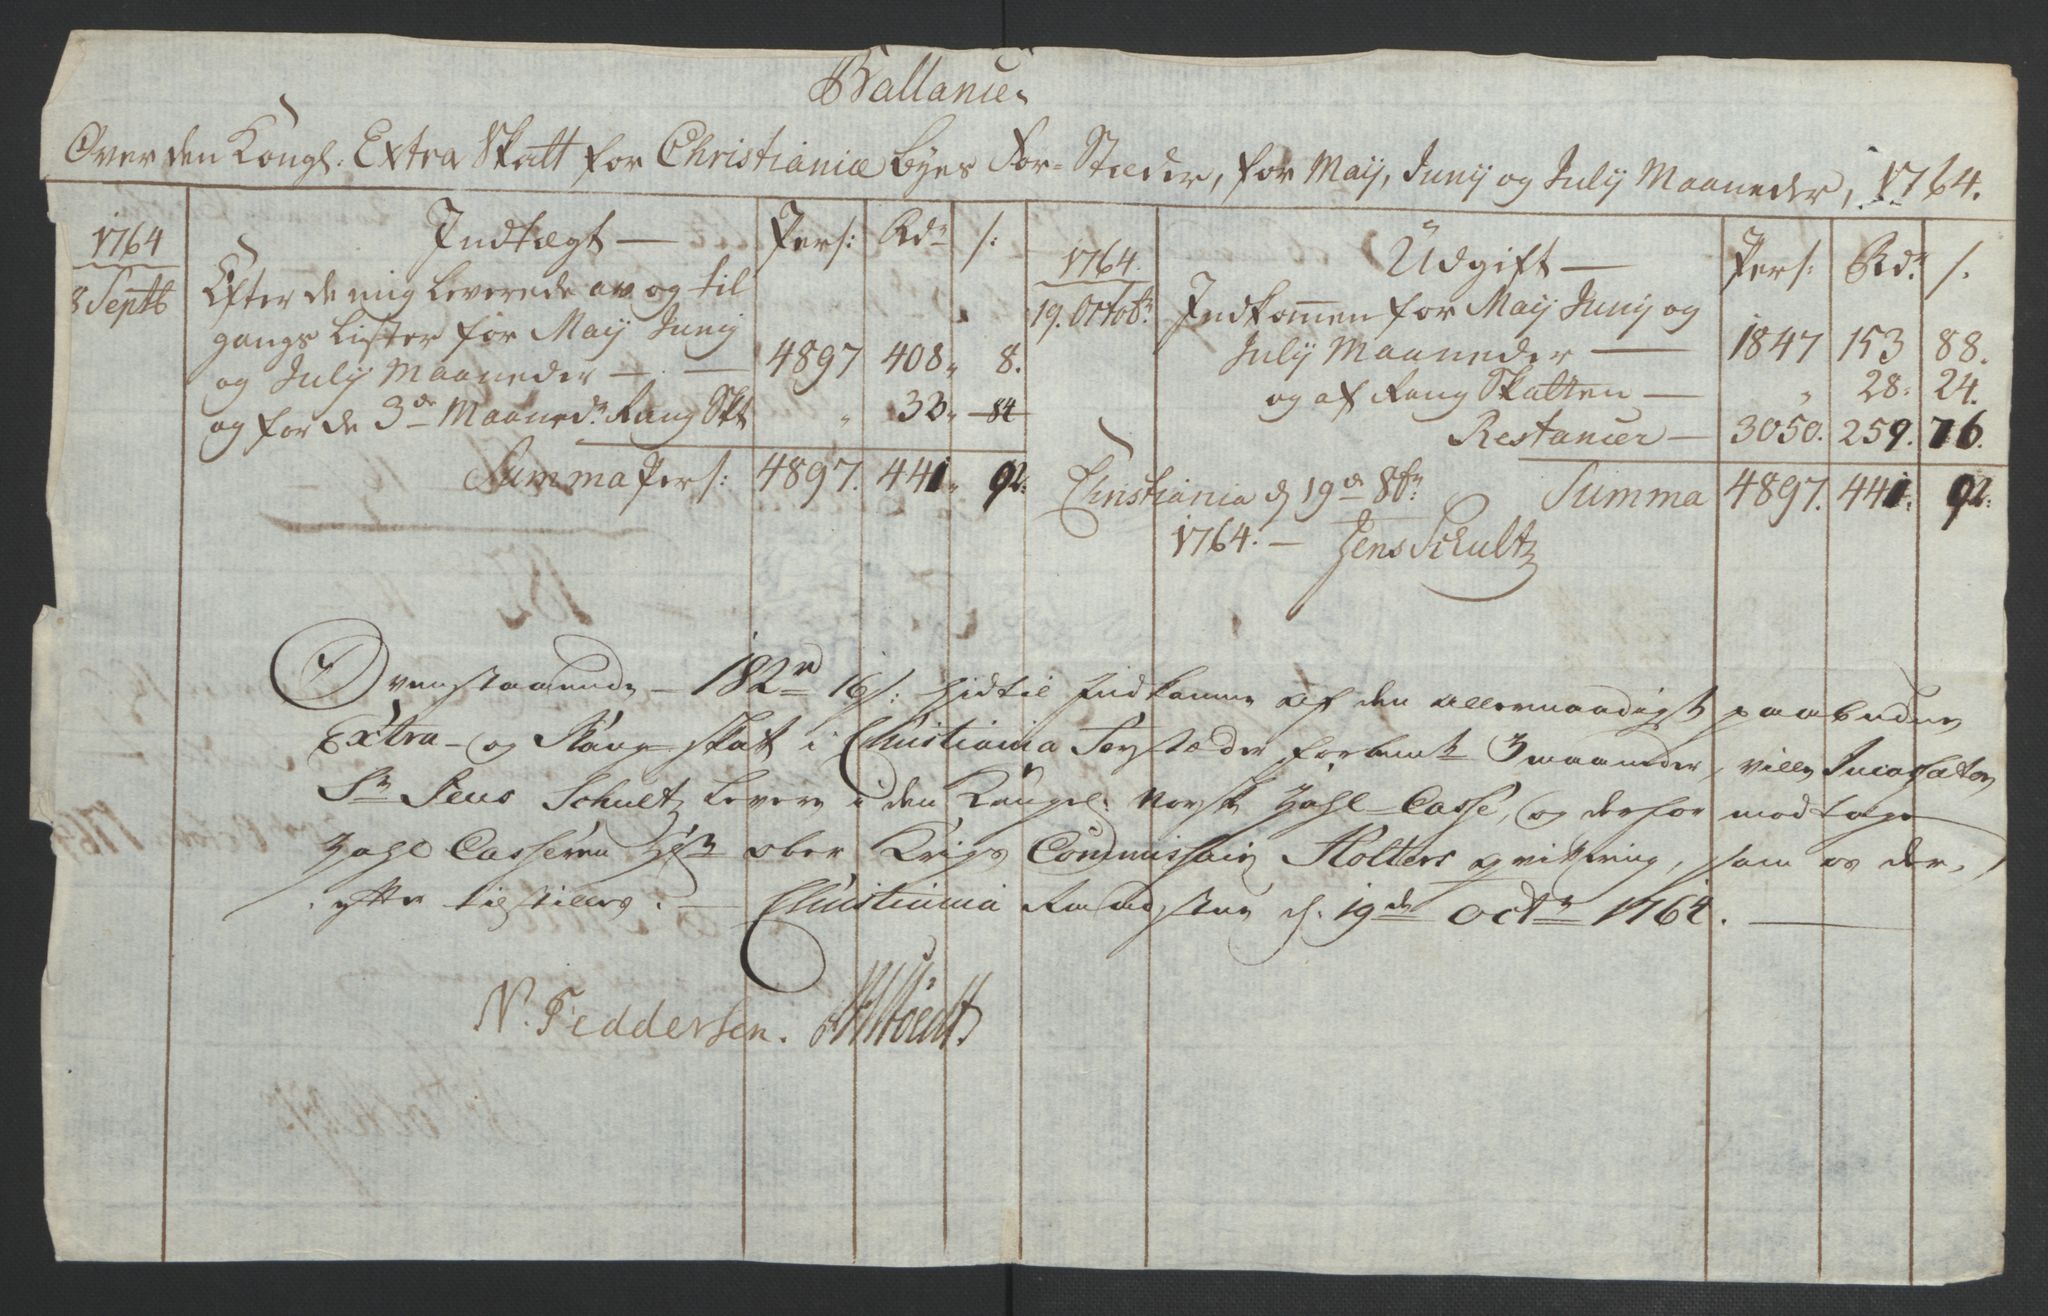 Ballance
Over den Kongl: Extra Skatt for Christianiæ Byes For-Stæder, for Maij, Junij og Julij Maaneder, 1764.
1764
8 Septb
Indtægt — Pers: Rdr s:
Efter de mig leverede av og til
gangs Lister for Maij Junij
og Julij Maaneder — 4897 408„ 8.
og for de 3de Maaned: Rang Skt „ 33„ 84
Summa Pers: 4897. 441„ 92:
1764.
19. Octobr:
Udgift — Pers: Rdr. s.
Indkommen for Maij Junij og
Julij Maaneder — 1847 153 88.
og af Rang Skatten — „ 28: 24.
Restancer — 3050. 259. 76.
Summa 4897. 441: 92:
Christiania d 19de 8br:
1764. — Jens Schultz
Ovenstaaende — 182rd 16s: hidtil Indkomne af den allernaadigst paabudne
Extra- og Rang skat i Christiania Forstæder forbemte 3 maaneder, ville Incassator
Sr Jens Schultz levere i den Kongel: Norsk Zahl-Casse, og derfor modtage
Zahl Casseren Hr ober Krigs Commissair Holters qvittering, som os der-
efter tilstilles. — Christiania Raadstue d. 19de Octr 1764. —
N. Feddersen.